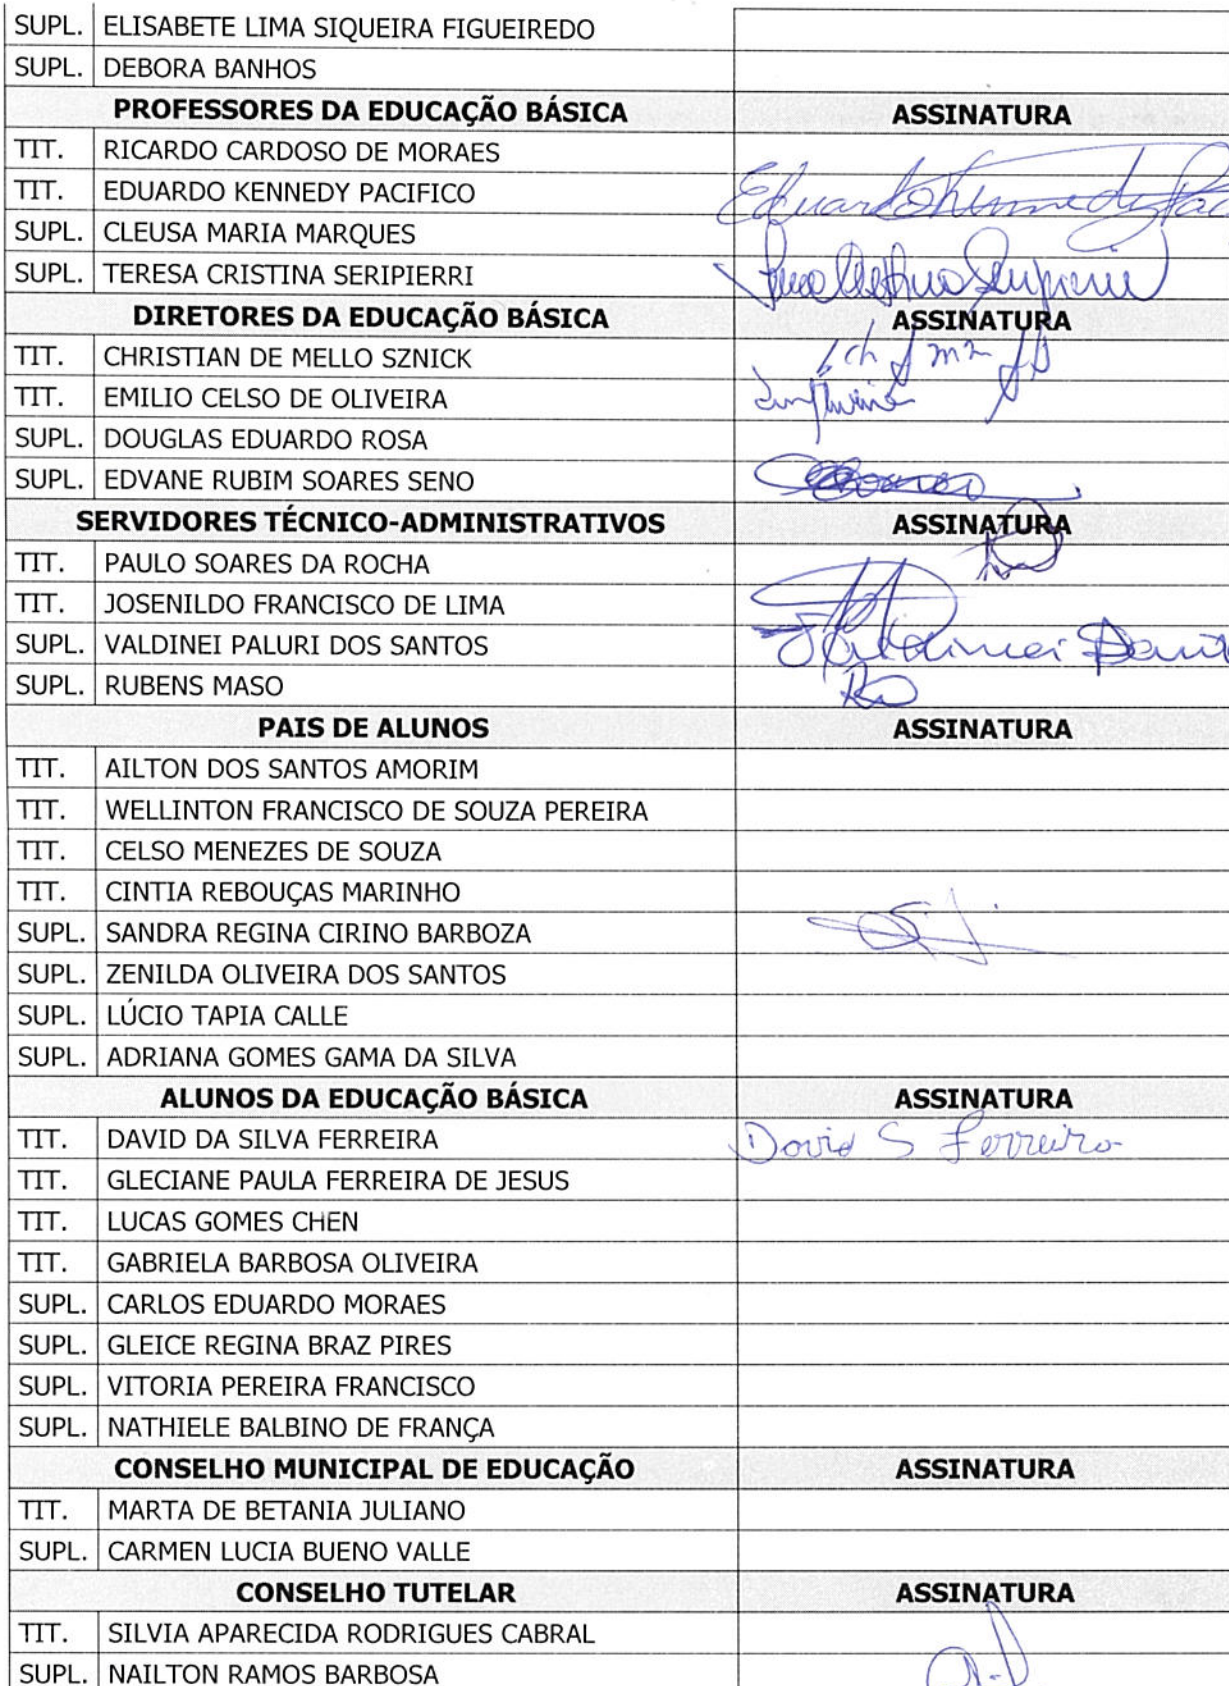 SUPL. ELISABETE LIMA SIQUEIRA FIGUEIREDO
SUPL. DEBORA BANHOS
PROFESSORES DA EDUCAÇÃO BÁSICA ASSINATURA
TIT. RICARDO CARDOSO DE MORAES
TIT. EDUARDO KENNEDY PACIFICO Eduardo Kennedy Pac
SUPL. CLEUSA MARIA MARQUES
SUPL. TERESA CRISTINA SERIPIERRI
DIRETORES DA EDUCAÇÃO BÁSICA ASSINATURA
TIT. CHRISTIAN DE MELLO SZNICK
TIT. EMILIO CELSO DE OLIVEIRA
SUPL. DOUGLAS EDUARDO ROSA
SUPL. EDVANE RUBIM SOARES SENO
SERVIDORES TÉCNICO-ADMINISTRATIVOS ASSINATURA
TIT. PAULO SOARES DA ROCHA
TIT. JOSENILDO FRANCISCO DE LIMA
SUPL. VALDINEI PALURI DOS SANTOS
SUPL. RUBENS MASO
PAIS DE ALUNOS ASSINATURA
TIT. AILTON DOS SANTOS AMORIM
TIT. WELLINTON FRANCISCO DE SOUZA PEREIRA
TIT. CELSO MENEZES DE SOUZA
TIT. CINTIA REBOUÇAS MARINHO
SUPL. SANDRA REGINA CIRINO BARBOZA
SUPL. ZENILDA OLIVEIRA DOS SANTOS
SUPL. LÚCIO TAPIA CALLE
SUPL. ADRIANA GOMES GAMA DA SILVA
ALUNOS DA EDUCAÇÃO BÁSICA ASSINATURA
TIT. DAVID DA SILVA FERREIRA David S Ferreira
TIT. GLECIANE PAULA FERREIRA DE JESUS
TIT. LUCAS GOMES CHEN
TIT. GABRIELA BARBOSA OLIVEIRA
SUPL. CARLOS EDUARDO MORAES
SUPL. GLEICE REGINA BRAZ PIRES
SUPL. VITORIA PEREIRA FRANCISCO
SUPL. NATHIELE BALBINO DE FRANÇA
CONSELHO MUNICIPAL DE EDUCAÇÃO ASSINATURA
TIT. MARTA DE BETANIA JULIANO
SUPL. CARMEN LUCIA BUENO VALLE
CONSELHO TUTELAR ASSINATURA
TIT. SILVIA APARECIDA RODRIGUES CABRAL
SUPL. NAILTON RAMOS BARBOSA